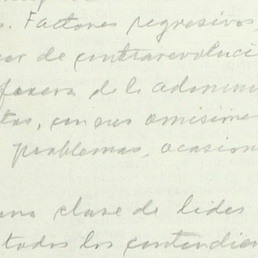 . Factores regresivos,
de contrarevoluci
de la
tas, con sus omisione
problemas, ocasion
una clase de lides
todos los contendien